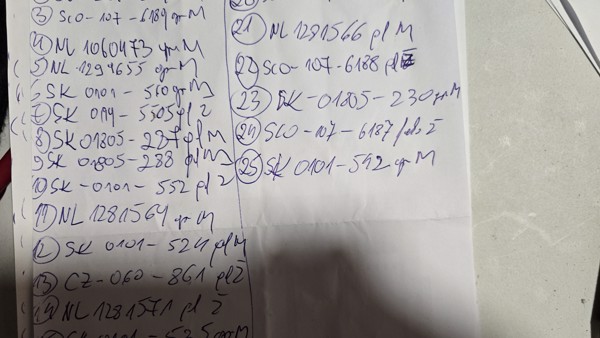 ③ SCO-107-6189 grM
④ NL 1060473 grM
⑤ NL 1294655 grM
SK 0101-560 grM
⑦ SK 0119-5505 pl Ž
⑧ SK 01805-287 pl M
9 SK 01805-288 pl M
10 SK-0101-552 pl Ž
⑪ NL 1281564 grM
⑫ SK 0101-524 pl M
⑬ CZ-060-861 pl Ž
⑭ NL 1281571 pl Ž
㉑ NL 1281566 pl M
㉒ SCO-107-6188 pl Ž
㉓ SK-01805-230 grM
㉔ SCO-107-6187 Ž
㉕ SK 0101-592 grM